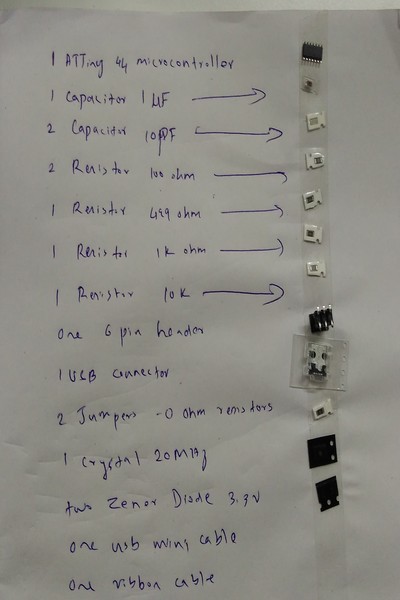 1 ATTiny 44 microcontroller
1 Capacitor 1 µF
2 Capacitor 10 PF
2 Resistor 100 ohm
1 Resistor 499 ohm
1 Resistor 1K ohm
1 Resistor 10K
one 6 pin header
1 USB connector
2 Jumpers - 0 ohm resistors
1 crystal 20 MHz
two Zenor Diode 3.3v
one usb mini cable
one ribbon cable